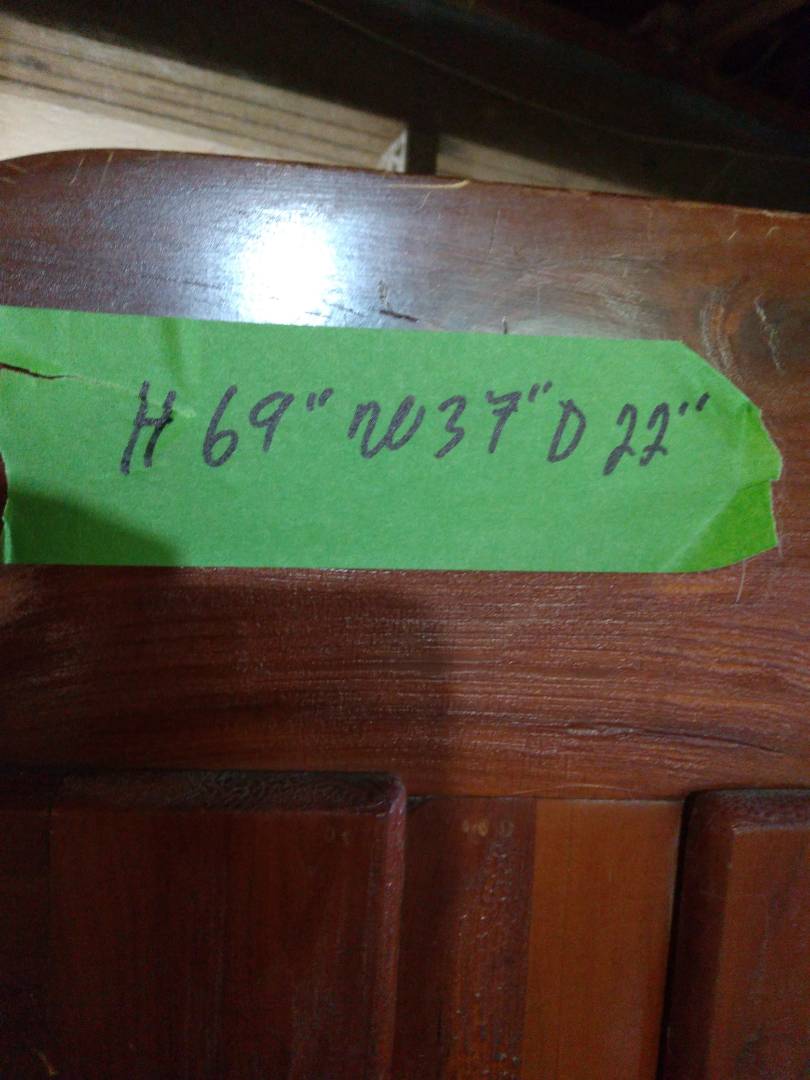 H 69" W 37" D 22"